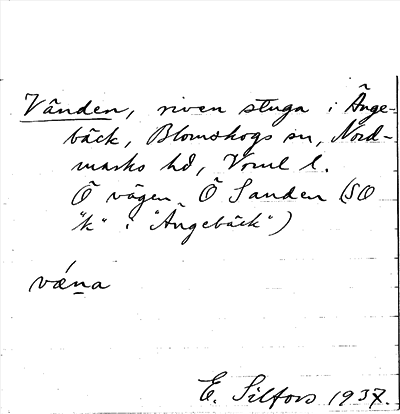 Vänden, riven stuga i Änge-
bäck, Blomskogs sn, Nord-
marks hd, Vrml l.
Ö vägen, Ö Sanden (SO
"k" i "Ängebäck")
vǽna
E. Silfors 1937.